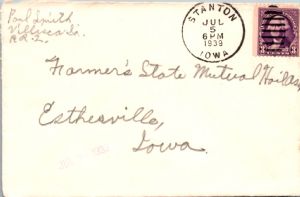 Paul Smith
Villisca Ia.
R.R.2.
STANTON
JUL
5
6PM
1939
IOWA
3
Farmer's State Mutual Hail
Estherville,
Iowa.